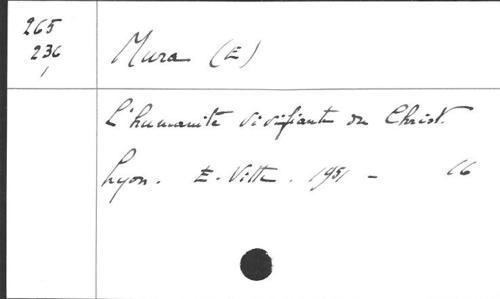 265
236
Mura (E)
L'humanité vivifiante du Christ.
Lyon. E. Vitte. 1951 - 16